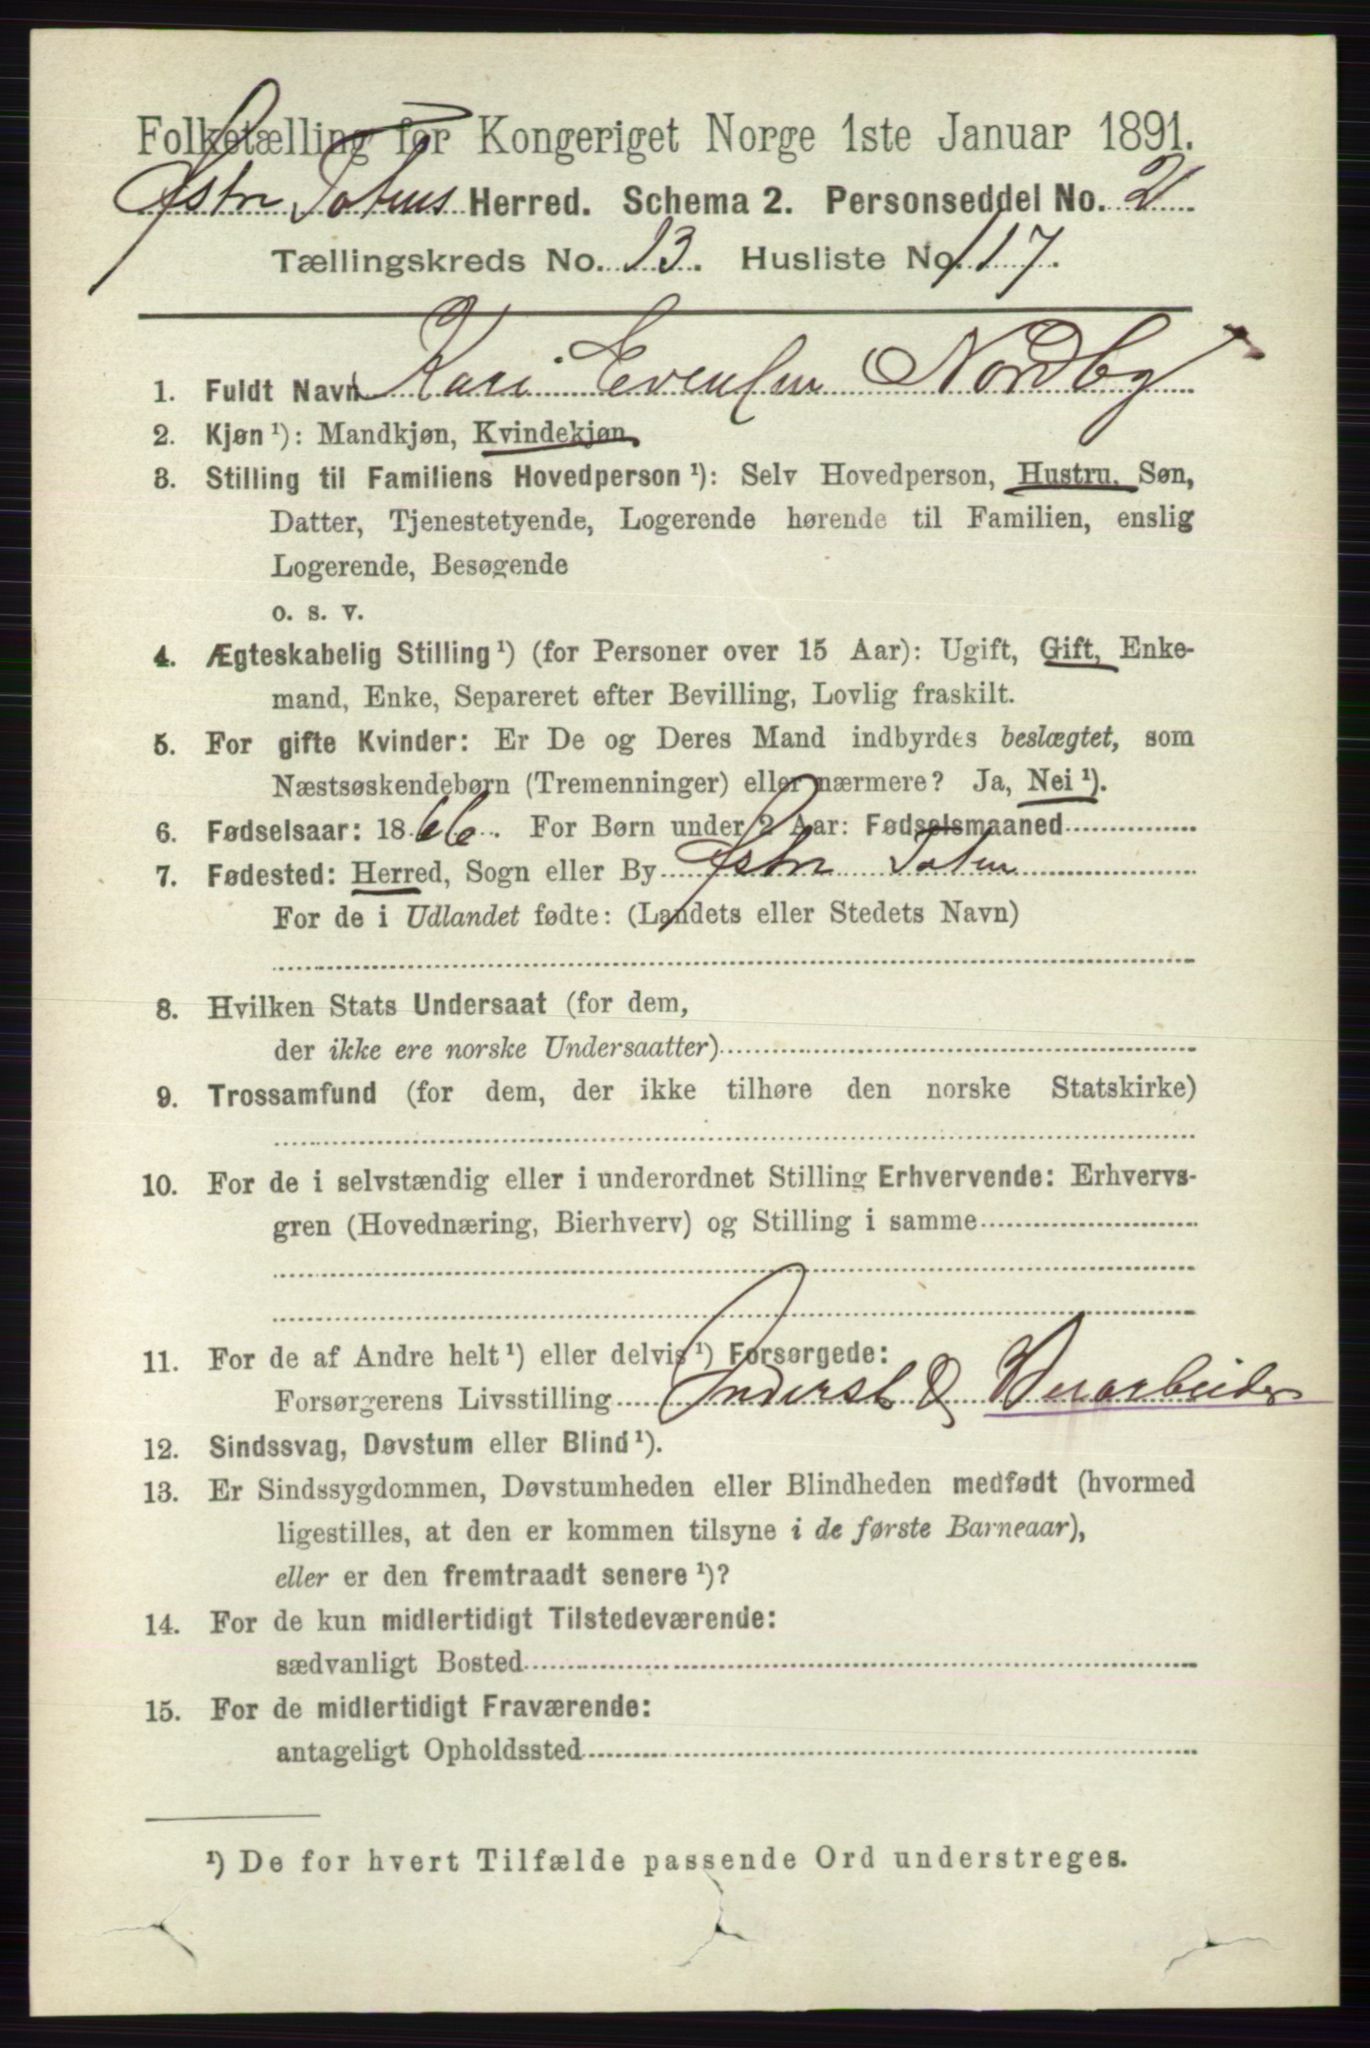 Folketælling for Kongeriget Norge 1ste Januar 1891.
Østre Totens Herred. Schema 2. Personseddel No. 2
Tællingskreds No. 13. Husliste No. 117.
1. Fuldt Navn Kari Evensen Nordby
2. Kjøn¹): Mandkjøn, Kvindekjøn.
3. Stilling til Familiens Hovedperson¹): Selv Hovedperson, Hustru, Søn,
Datter, Tjenestetyende, Logerende hørende til Familien, enslig
Logerende, Besøgende
o. s. v.
4. Ægteskabelig Stilling¹) (for Personer over 15 Aar): Ugift, Gift, Enke-
mand, Enke, Separeret efter Bevilling, Lovlig fraskilt.
5. For gifte Kvinder: Er De og Deres Mand indbyrdes beslægtet, som
Næstsøskendebørn (Tremenninger) eller nærmere? Ja, Nei¹).
6. Fødselsaar: 1866. For Børn under 2 Aar: Fødselsmaaned
7. Fødested: Herred, Sogn eller By Østre Toten
For de i Udlandet fødte: (Landets eller Stedets Navn)
8. Hvilken Stats Undersaat (for dem,
der ikke ere norske Undersaatter)
9. Trossamfund (for dem, der ikke tilhøre den norske Statskirke)
10. For de i selvstændig eller i underordnet Stilling Erhvervende: Erhvervs-
gren (Hovednæring, Bierhverv) og Stilling i samme
11. For de af Andre helt¹) eller delvis¹) Forsørgede:
Forsørgerens Livsstilling Inderst &
12. Sindssvag, Døvstum eller Blind¹).
13. Er Sindssygdommen, Døvstumheden eller Blindheden medfødt (hvormed
ligestilles, at den er kommen tilsyne i de første Barneaar),
eller er den fremtraadt senere¹)?
14. For de kun midlertidigt Tilstedeværende:
sædvanligt Bosted
15. For de midlertidigt Fraværende:
antageligt Opholdssted
¹) De for hvert Tilfælde passende Ord understreges.